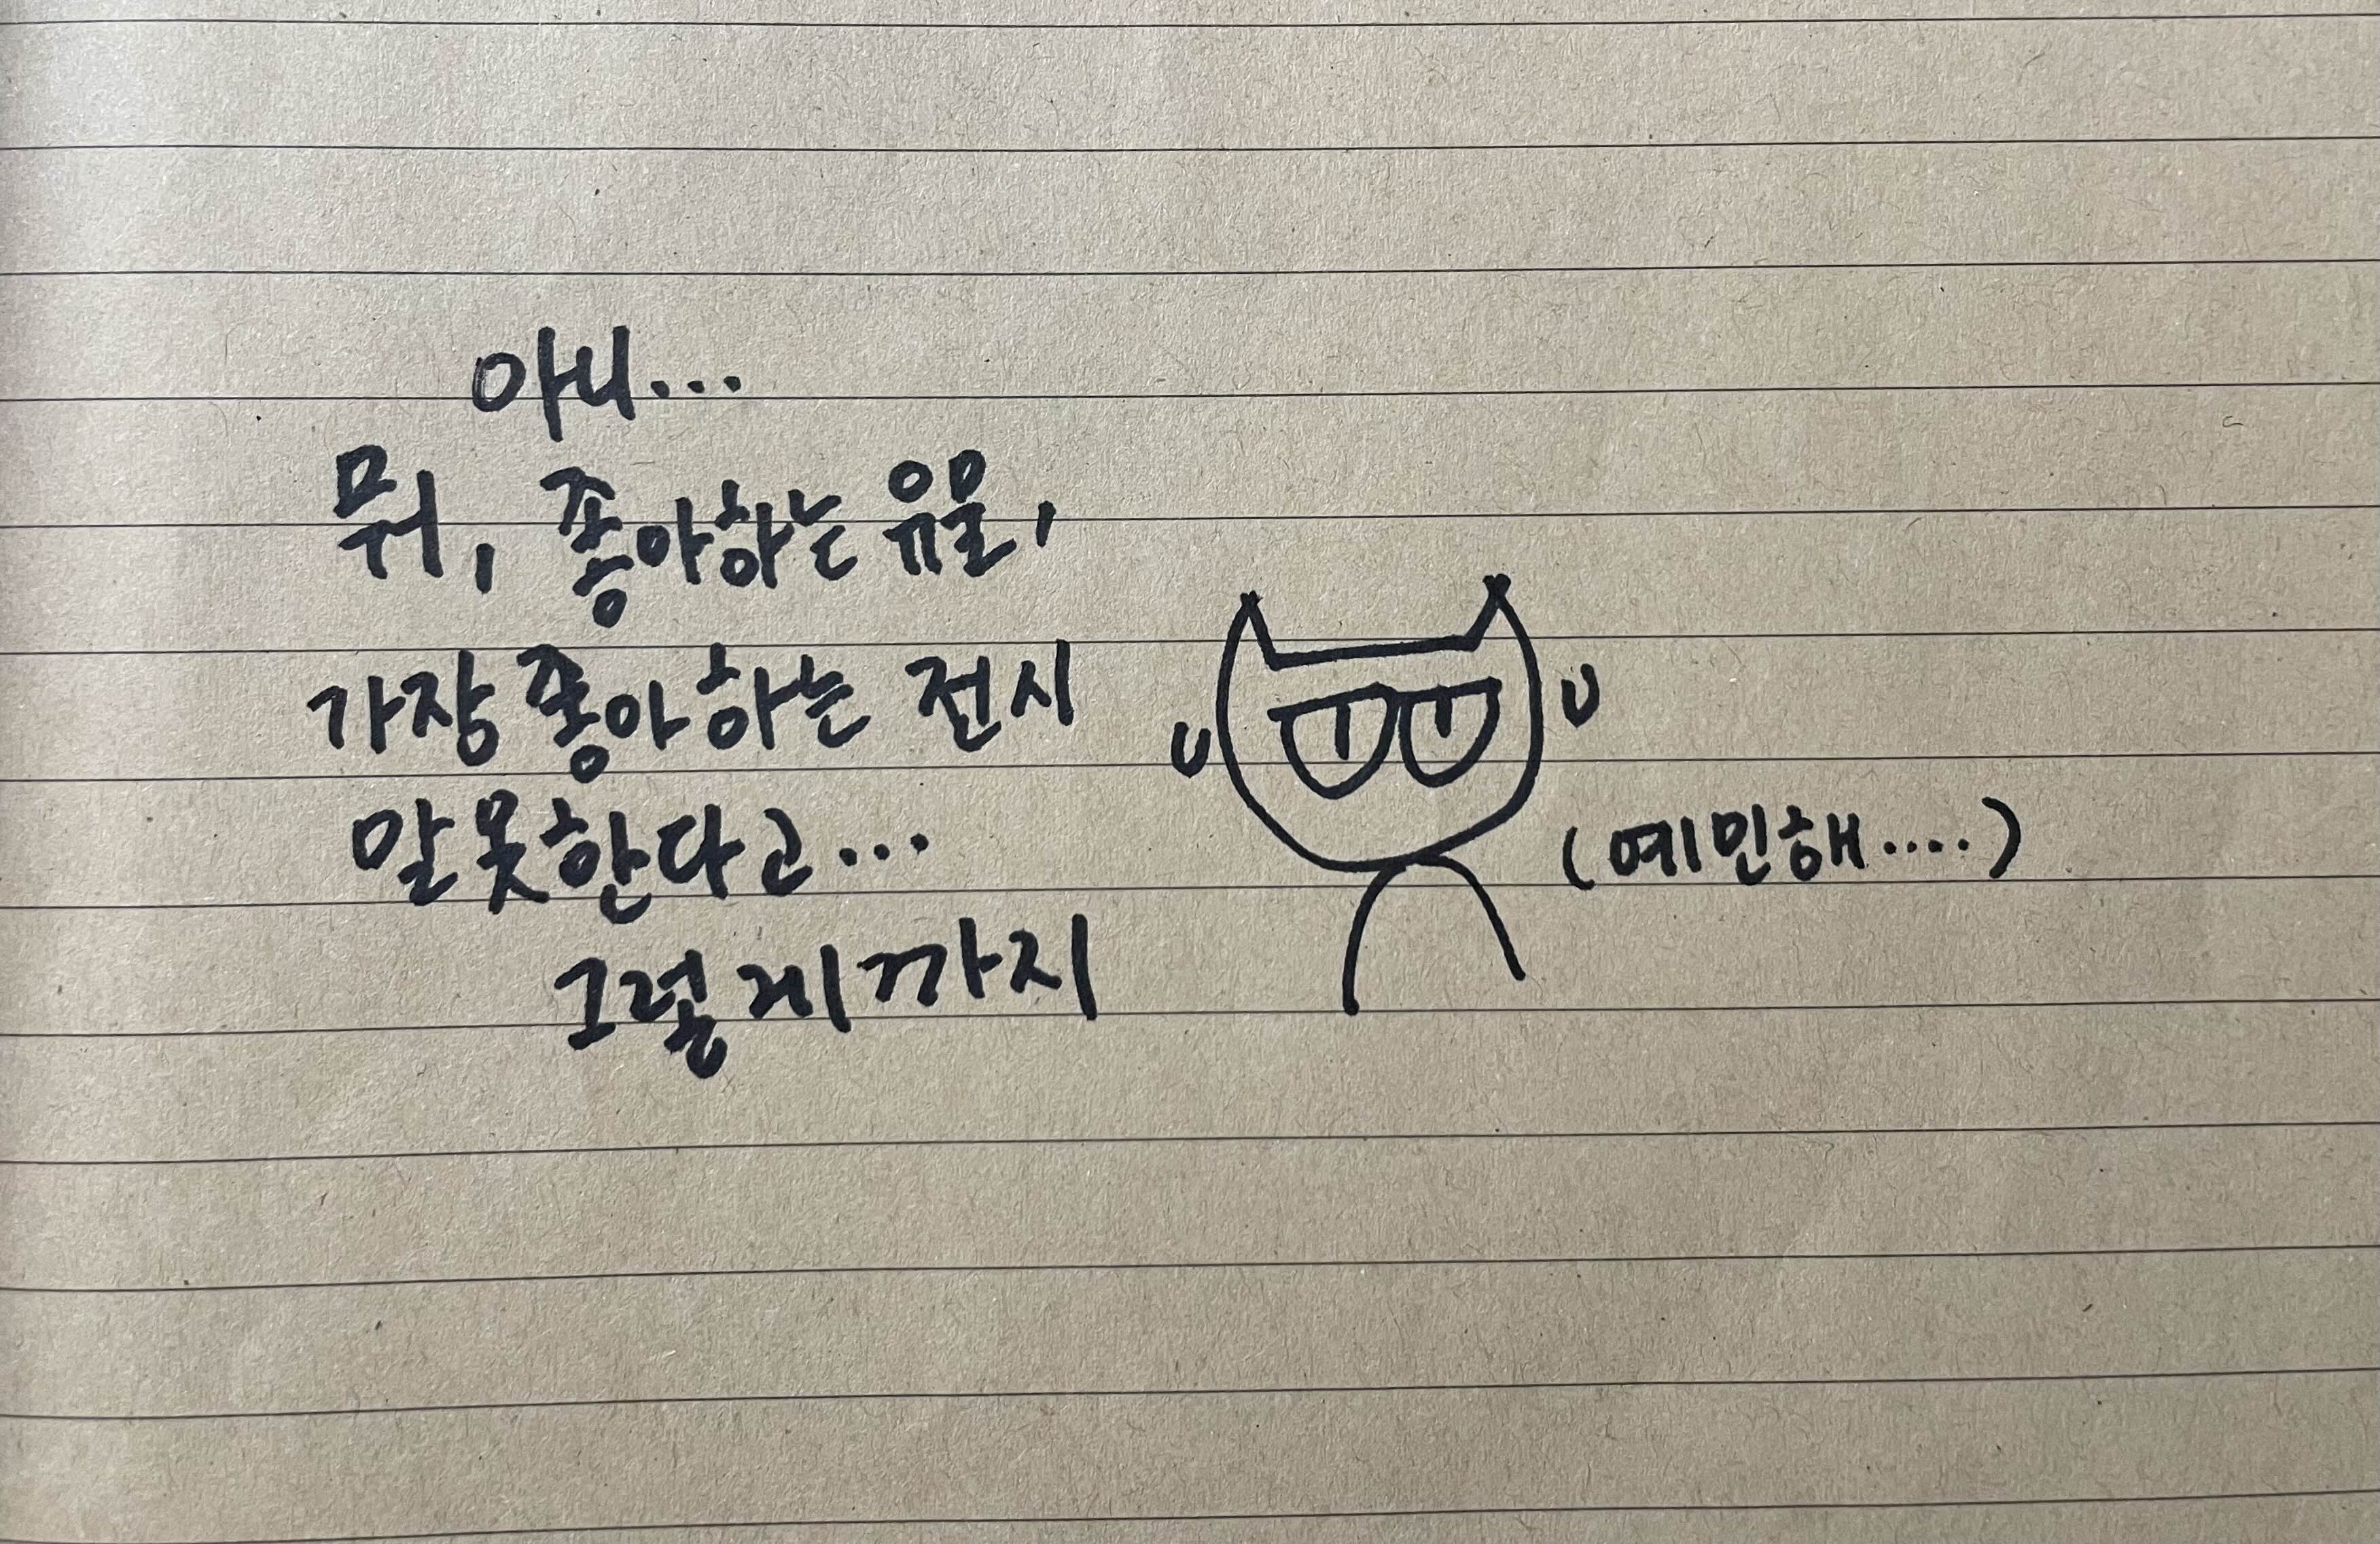 아니...
뭐, 좋아하는 유물,
가장 좋아하는 전시
말 못한다고...
그럴게까지
(예민해....)